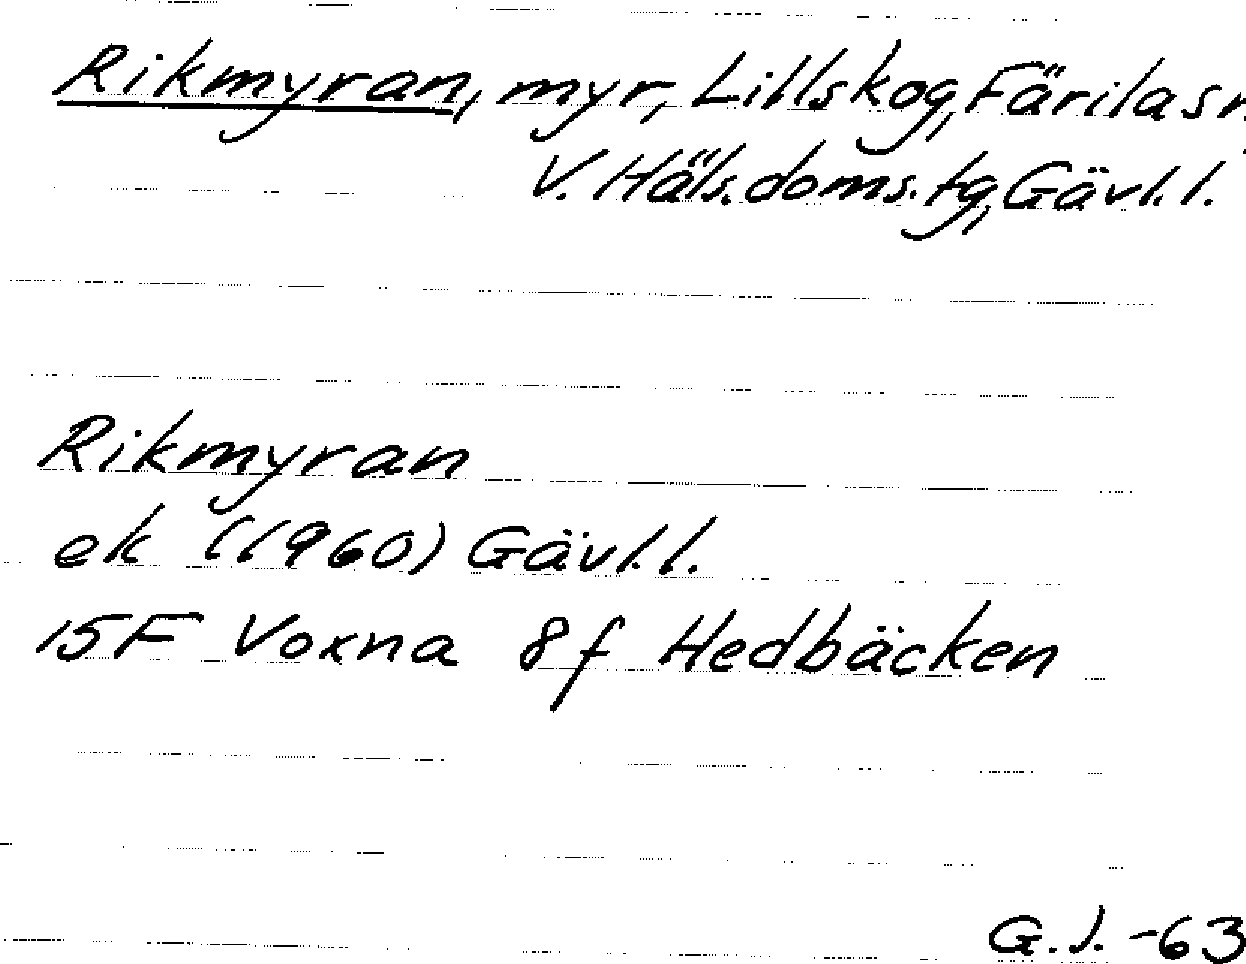 Rikmyran, myr, Lillskog, Färila sn,
V. Häls. doms. tg, Gävl. l.
Rikmyran
ek (1960) Gävl. l.
15F Voxna 8f Hedbäcken
G.J. -63